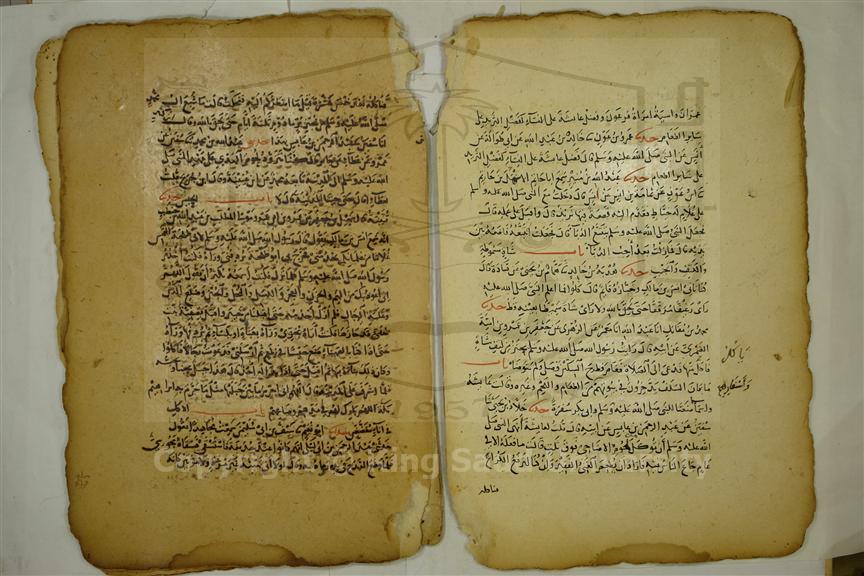 عمران واسية امراة فرعون وفضل عائشة على النساء كفضل الثريد على
سائر الطعام حدثنا عمرو بن عون ثنا خالد بن عبد الله عن ابي طوالة عن
انس عن النبي صلى الله عليه وسلم قال فضل عائشة على النساء كفضل الثريد
على سائر الطعام حدثنا عبد الله بن منير سمع ابا حاتم الاشهل بن حاتم
ثنا ابن عون عن ثمامة بن انس عن انس قال دخلت مع النبي صلى الله عليه وسلم
على غلام له خياط فقدم اليه قصعة فيها ثريد قال واقبل على عمله قال
فجعل النبي صلى الله عليه وسلم يتتبع الدباء قال فجعلت اتتبعه فاضعه بين
يديه قال فما زلت بعد احب الدباء باب شاة مسموطة
والكتف والجنب حدثنا هدبة بن خالد ثنا همام بن يحيى عن قتادة قال
كنا ناتي انس بن مالك وخبازه قائم قال كلوا فما اعلم النبي صلى الله عليه
راى رغيفا مرققا حتى لحق بالله ولا راى شاة سميطا بعينه قط حدثنا
محمد بن مقاتل انا عبد الله انا معمر عن الزهري عن جعفر بن عمرو بن امية
الضمري عن ابيه قال رايت رسول الله صلى الله عليه وسلم يحتز من كتف شاة
فاكل منها فدعي الى الصلاة فقام فطرح السكين وصلى ولم يتوضا باب
ما كان السلف يدخرون في بيوتهم من الطعام واللحم وغيره وقالت عائشة
واسماء صنعنا للنبي صلى الله عليه وسلم وابي بكر سفرة حدثنا خلاد بن يحيى ثنا
سفين عن عبد الرحمن بن عابس عن ابيه قال قلت لعائشة انهى النبي صلى
الله عليه وسلم ان توكل لحوم الاضاحي فوق ثلث قالت ما فعله الا في
عام جاع الناس فيه فاراد ان يطعم الغني الفقير وان كنا لنرفع الكراع
فناكله
فناكله بعد خمس عشرة قيل ما اضطركم اليه فضحكت قالت ما شبع ال محمد
صلى الله عليه وسلم من خبز بر مادوم ثلثة ايام حتى لحق بالله وقال ابن كثير
انا سفين ثنا عبد الرحمن بن عابس بهذا حدثنا عبد الله بن محمد ثنا سفين عن
عمرو عن عطاء عن جابر قال كنا نتزود لحوم الهدي على عهد النبي صلى
الله عليه وسلم الى المدينة تابعه محمد عن ابن عيينة وقال ابن جريج قلت
لعطاء اقال حتى جئنا المدينة قال لا باب الحيس حدثنا
قتيبة ثنا اسمعيل بن جعفر عن عمرو بن ابي عمرو مولى المطلب بن عبد
الله انه سمع انس بن مالك يقول قال رسول الله صلى الله عليه وسلم لابي طلحة التمس
غلاما من غلمانكم يخدمني فخرج بي ابو طلحة يردفني وراءه فكنت اخدم
رسول الله صلى الله عليه وسلم كلما نزل فكنت اسمعه يكثر ان يقول اللهم
اني اعوذ بك من الهم والحزن والعجز والكسل والبخل والجبن وضلع الدين
وغلبة الرجال فلم ازل اخدمه حتى اقبلنا من خيبر واقبل بصفية بنت
حيي قد حازها فكنت اراه يحوي وراءه بعباءة او بكساء ثم يردفها وراءه
حتى اذا كنا بالصهباء صنع حيسا في نطع ثم ارسلني فدعوت رجالا فاكلوا
وكان ذلك بناءه بها ثم اقبل حتى اذا بدا له احد قال هذا جبل يحبنا ونحبه
فلما اشرف على المدينة قال اللهم اني احرم ما بين جبليها مثل ما حرم به ابراهيم
مكة اللهم بارك لهم في مدهم وصاعهم باب الاكل
في اناء مفضض حدثنا ابو نعيم ثنا سيف بن ابي سليمن سمعت مجاهدا يقول
حدثني عبد الرحمن بن ابي ليلى انهم كانوا عند حذيفة فاستسقى فسقاه مجوسي
فلما وضع القدح في يده رماه به وقال لولا اني نهيته غير مرة ولا مرتين كانه
1957
Copyright © King Saud University